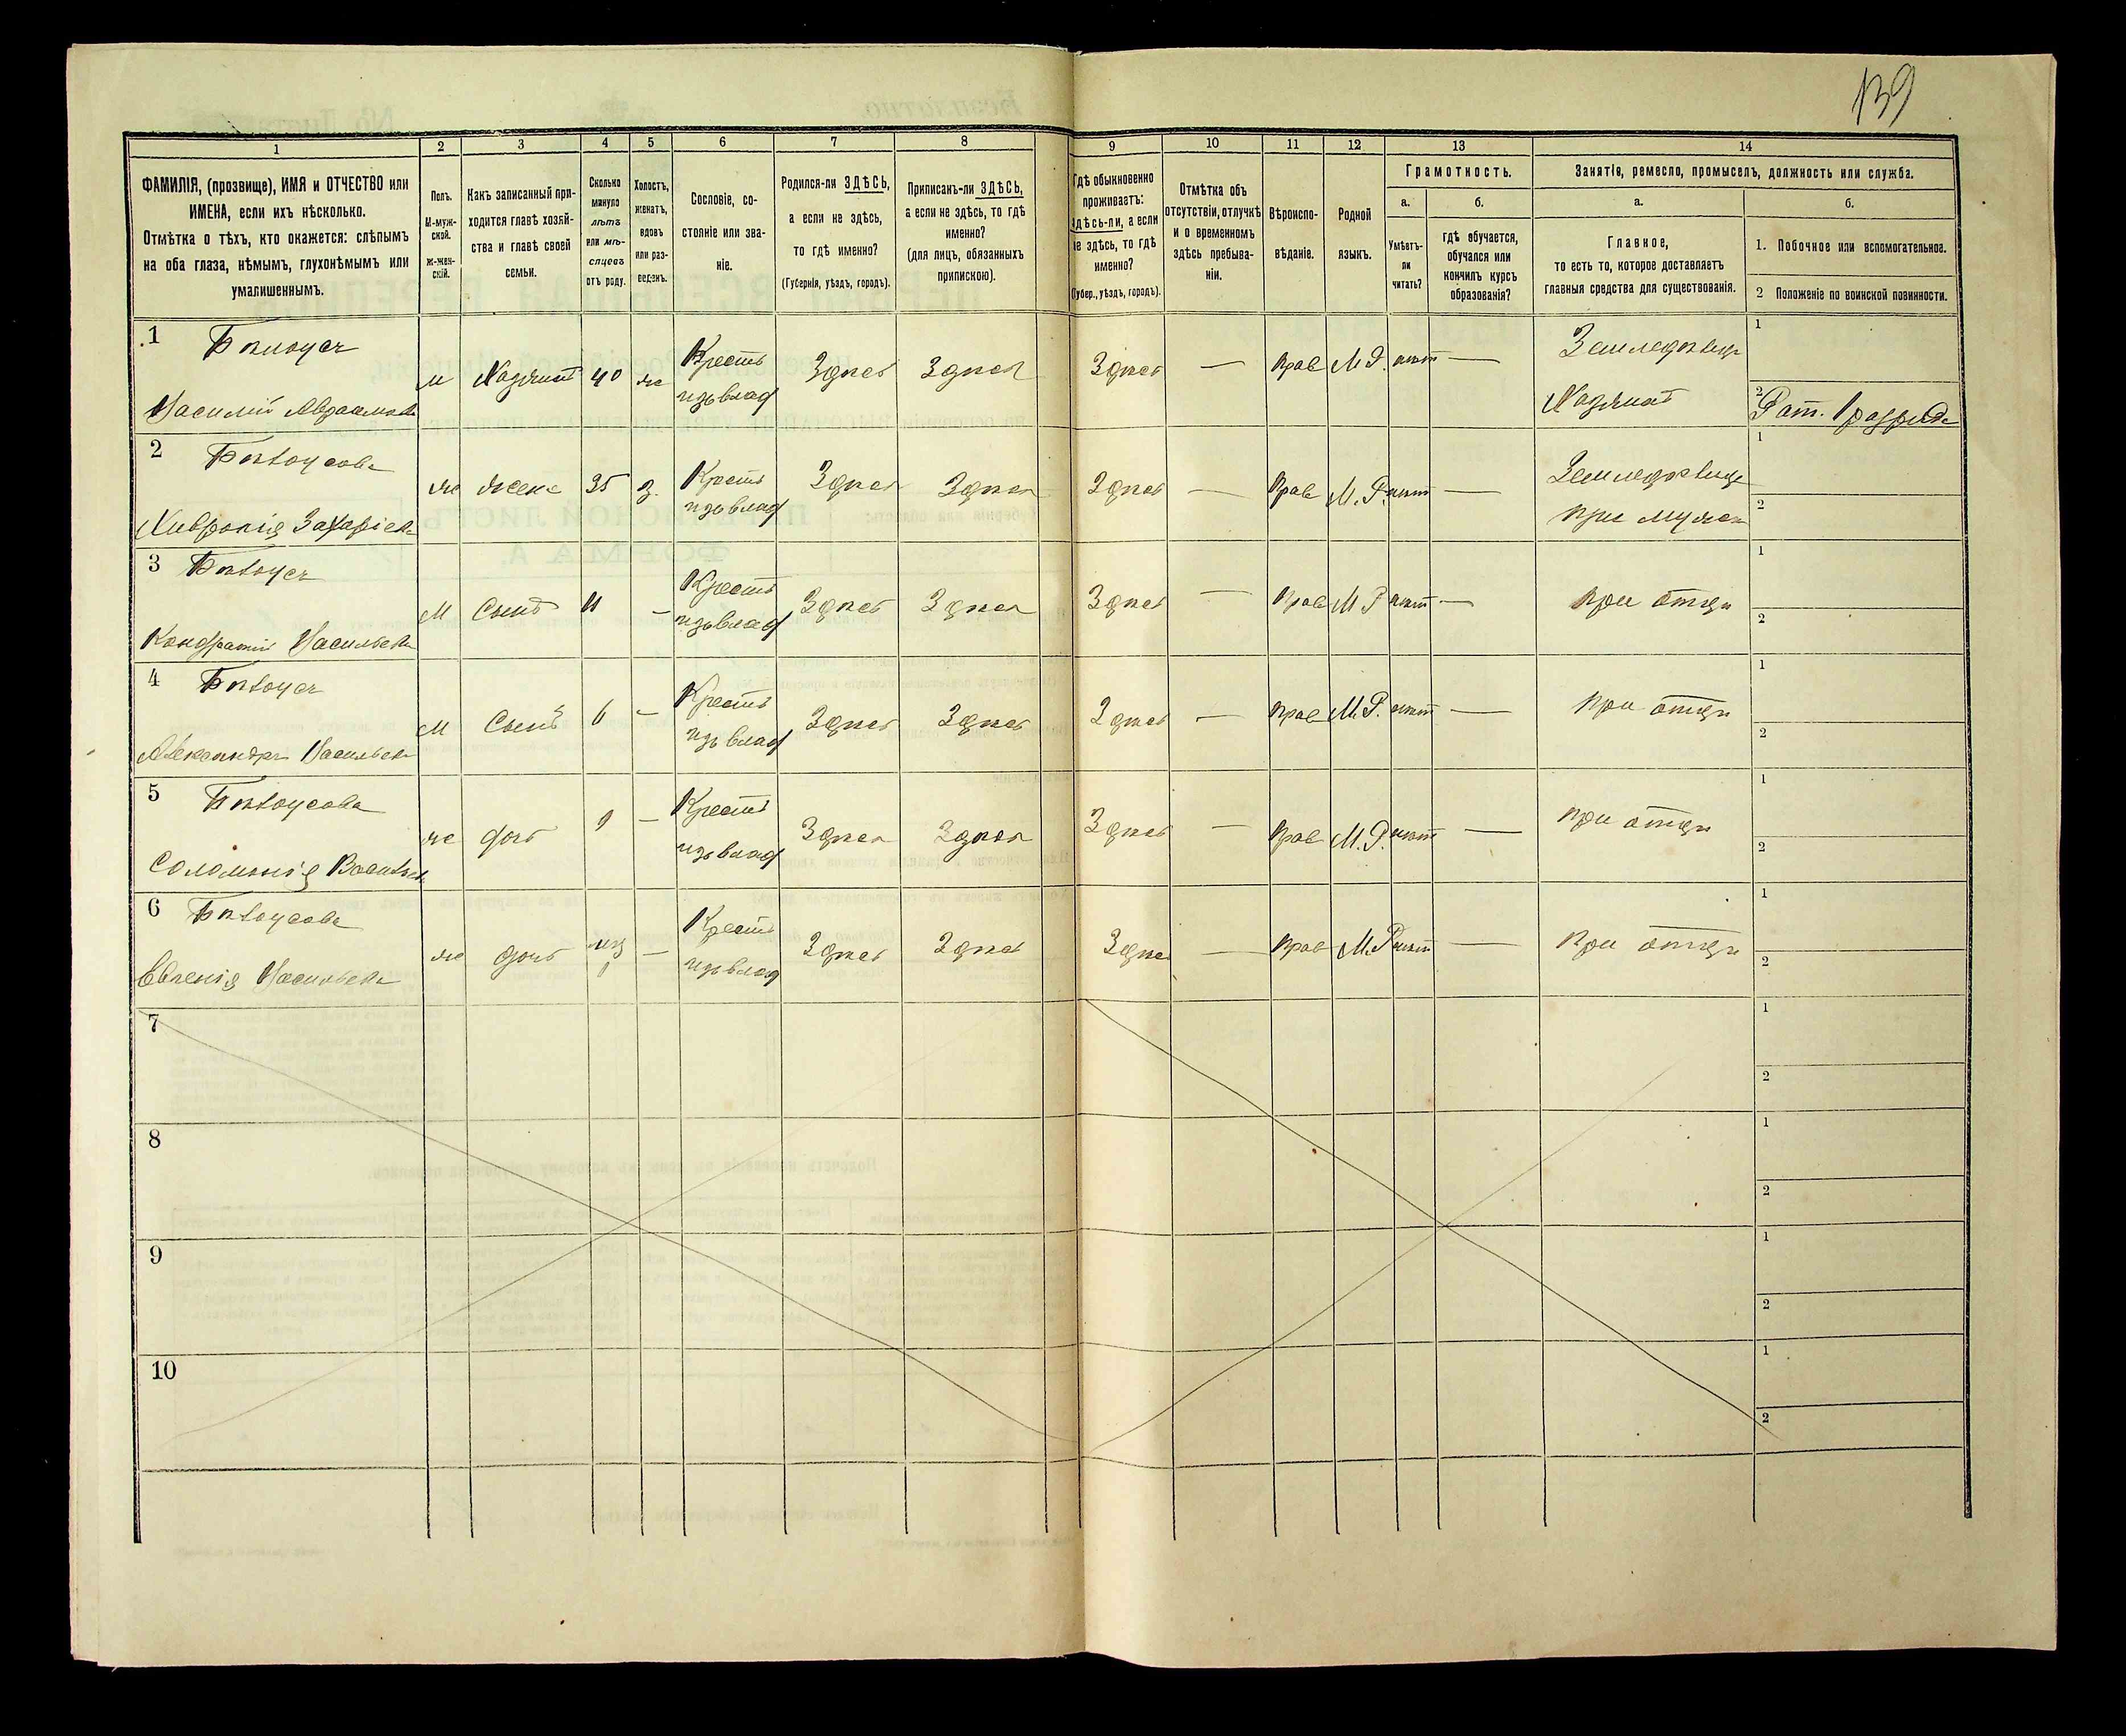 139
1
2
3
4
5
6
7
8
9
10
11
12
13
14
ФАМИЛІЯ, (прозвище), ИМЯ и ОТЧЕСТВО или
ИМЕНА, если ихъ нѣсколько.
Отмѣтка о тѣхъ, кто окажется: слѣпымъ
на оба глаза, нѣмымъ, глухонѣмымъ или
умалишеннымъ.
Полъ.
М-муж-
ской.
Ж-жен-
скій.
Какъ записанный при-
ходится главѣ хозяй-
ства и главѣ своей
семьи.
Сколько
минуло
лѣтъ
или мѣ-
сяцевъ
отъ роду.
Холостъ,
женатъ,
вдовъ
или раз-
веденъ.
Сословіе, со-
стояніе или зва-
ніе.
Родился-ли ЗДѢСЬ,
а если не здѣсь,
то гдѣ именно?
(Губернія, уѣздъ, городъ).
Приписанъ-ли ЗДѢСЬ,
а если не здѣсь, то гдѣ
именно?
(для лицъ, обязанныхъ
припискою).
Гдѣ обыкновенно
проживаетъ:
здѣсь-ли, а если
не здѣсь, то гдѣ
именно?
(Губер., уѣздъ, городъ).
Отмѣтка объ
отсутствіи, отлучкѣ
и о временномъ
здѣсь пребыва-
ніи.
Вѣроиспо-
вѣданіе.
Родной
языкъ.
Грамотность.
а.
Умѣетъ-
ли
читать?
б.
гдѣ обучается,
обучался или
кончилъ курсъ
образованія?
Занятіе, ремесло, промыселъ, должность или служба.
а.
Главное,
то есть то, которое доставляетъ
главныя средства для существованія.
б.
1. Побочное или вспомогательное.
2 Положеніе по воинской повинности.
1 Бѣлоусъ
Василій
м Хозяинъ 40 же Крестъ
изъ влад
Здѣсь Здѣсь Здѣсь — Прав М.Р. нѣт —
Земледѣлецъ
Хозяинъ
1
2 Рат. 1 разряда
2 Бѣлоусова
же жена 35 з. Крестъ
изъ влад
Здѣсь Здѣсь Здѣсь — Прав М.Р. нѣт —
при мужѣ
1
2
3 Бѣлоусъ
Кондратій
М Сынъ 11 — Крестъ
изъ влад
Здѣсь Здѣсь Здѣсь — Прав М.Р. нѣт — при отцѣ
1
2
4 Бѣлоусъ
Александръ
М Сынъ 6 — Крестъ
изъ влад
Здѣсь Здѣсь Здѣсь — Прав М.Р. нѣт — при отцѣ
1
2
5 Бѣлоусова
Соломонія
же дочь 9 — Крестъ
изъ влад
Здѣсь Здѣсь Здѣсь — Прав М.Р. нѣт — при отцѣ
1
2
6 Бѣлоусова
же дочь — Крестъ
изъ влад
Здѣсь Здѣсь Здѣсь — Прав М.Р. нѣт — при отцѣ
1
2
7
1
2
8
1
2
9
1
2
10
1
2